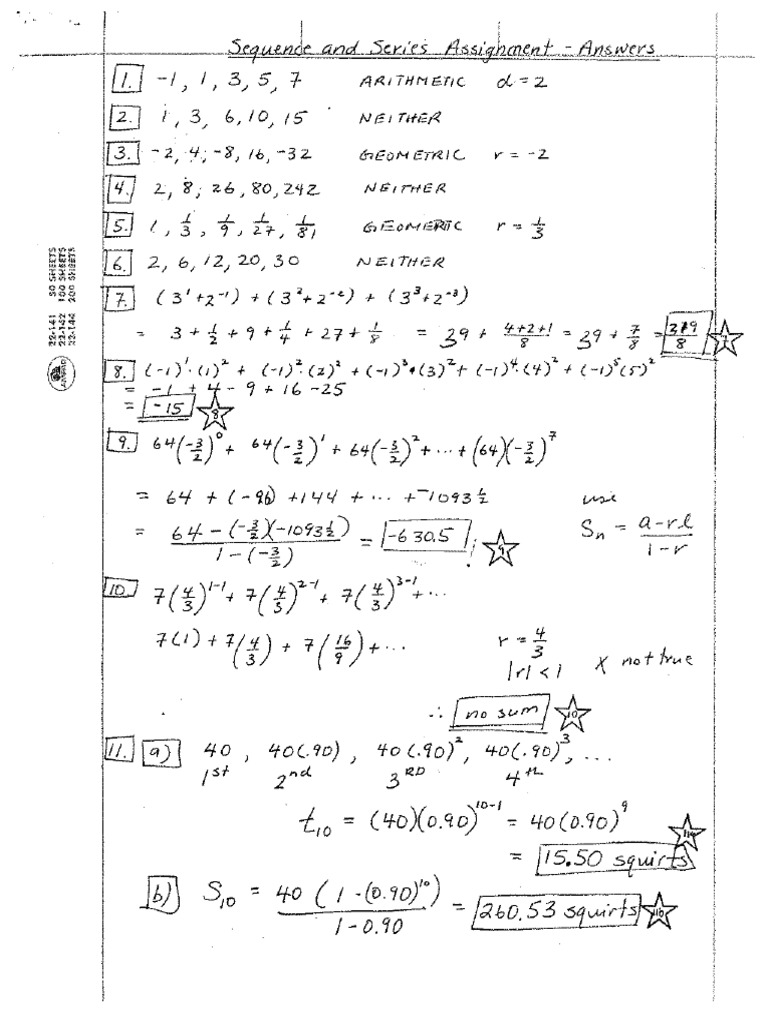 Sequence and Series Assignment - Answers
1. -1, 1, 3, 5, 7 ARITHMETIC d = 2
2. 1, 3, 6, 10, 15 NEITHER
3. -2, 4, -8, 16, -32 GEOMETRIC r = -2
4. 2, 8, 26, 80, 242 NEITHER
5. 1, 1/3, 1/9, 1/27, 1/81 GEOMERTIC r = 1/3
6. 2, 6, 12, 20, 30 NEITHER
7. (3¹+2⁻¹) + (3²+2⁻²) + (3³+2⁻³)
= 3 + 1/2 + 9 + 1/4 + 27 + 1/8 = 39 + (4+2+1)/8 = 39 + 7/8 = 319/8 7
8. (-1)¹·(1)² + (-1)²·(2)² + (-1)³·(3)² + (-1)⁴·(4)² + (-1)⁵(5)²
= -1 + 4 - 9 + 16 - 25
= -15 8
9. 64(-3/2)⁰ + 64(-3/2)¹ + 64(-3/2)² + ... + (64)(-3/2)⁷
= 64 + (-96) + 144 + ... + -1093 1/2 use
= (64 - (-3/2)(-1093 1/2))/(1 - (-3/2)) = -630.5 ! 9 Sn = (a - rl)/(1 - r)
10. 7(4/3)¹⁻¹ + 7(4/3)²⁻¹ + 7(4/3)³⁻¹ + ...
7(1) + 7(4/3) + 7(16/9) + ... r = 4/3
|r| < 1 X not true
∴ no sum 10
11. a) 40, 40(.90), 40(.90)², 40(.90)³, ...
1st 2nd 3RD 4th
t₁₀ = (40)(0.90)¹⁰⁻¹ = 40(0.90)⁹
= 15.50 squirts 11a
b) S₁₀ = 40(1-(0.90)¹⁰)/(1-0.90) = 260.53 squirts 11b
22-141 50 SHEETS
22-142 100 SHEETS
22-144 200 SHEETS
AMPAD